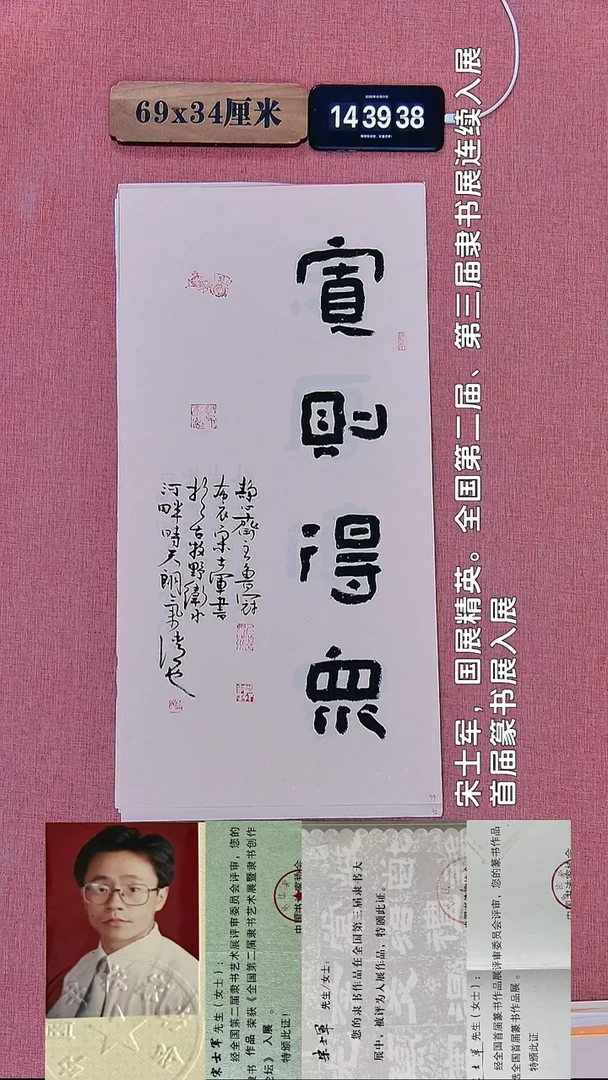 69x34厘米
14 39 38
寬則得眾
靜心齋主魯冠
布衣宋士軍書
於古牧野衛水
河畔時天朗氣清也
宋士军，国展精英。全国第二届、第三届隶书展连续入展
首届篆书展入展
宋士军 先生（女士）：
经全国第二届隶书艺术展评审委员会评审，您的
书 作品 荣获《全国第二届隶书艺术展暨隶书创作
坛》入展 。
特颁此证！
宋士军 先生/女士：
您的隶书作品在全国第三届隶书大
展中，被评为入展作品，特颁此证。
士军 先生（女士）：
经全国首届篆书作品展评审委员会评审，您的篆书作品
选全国首届篆书作品展 。
特颁此证